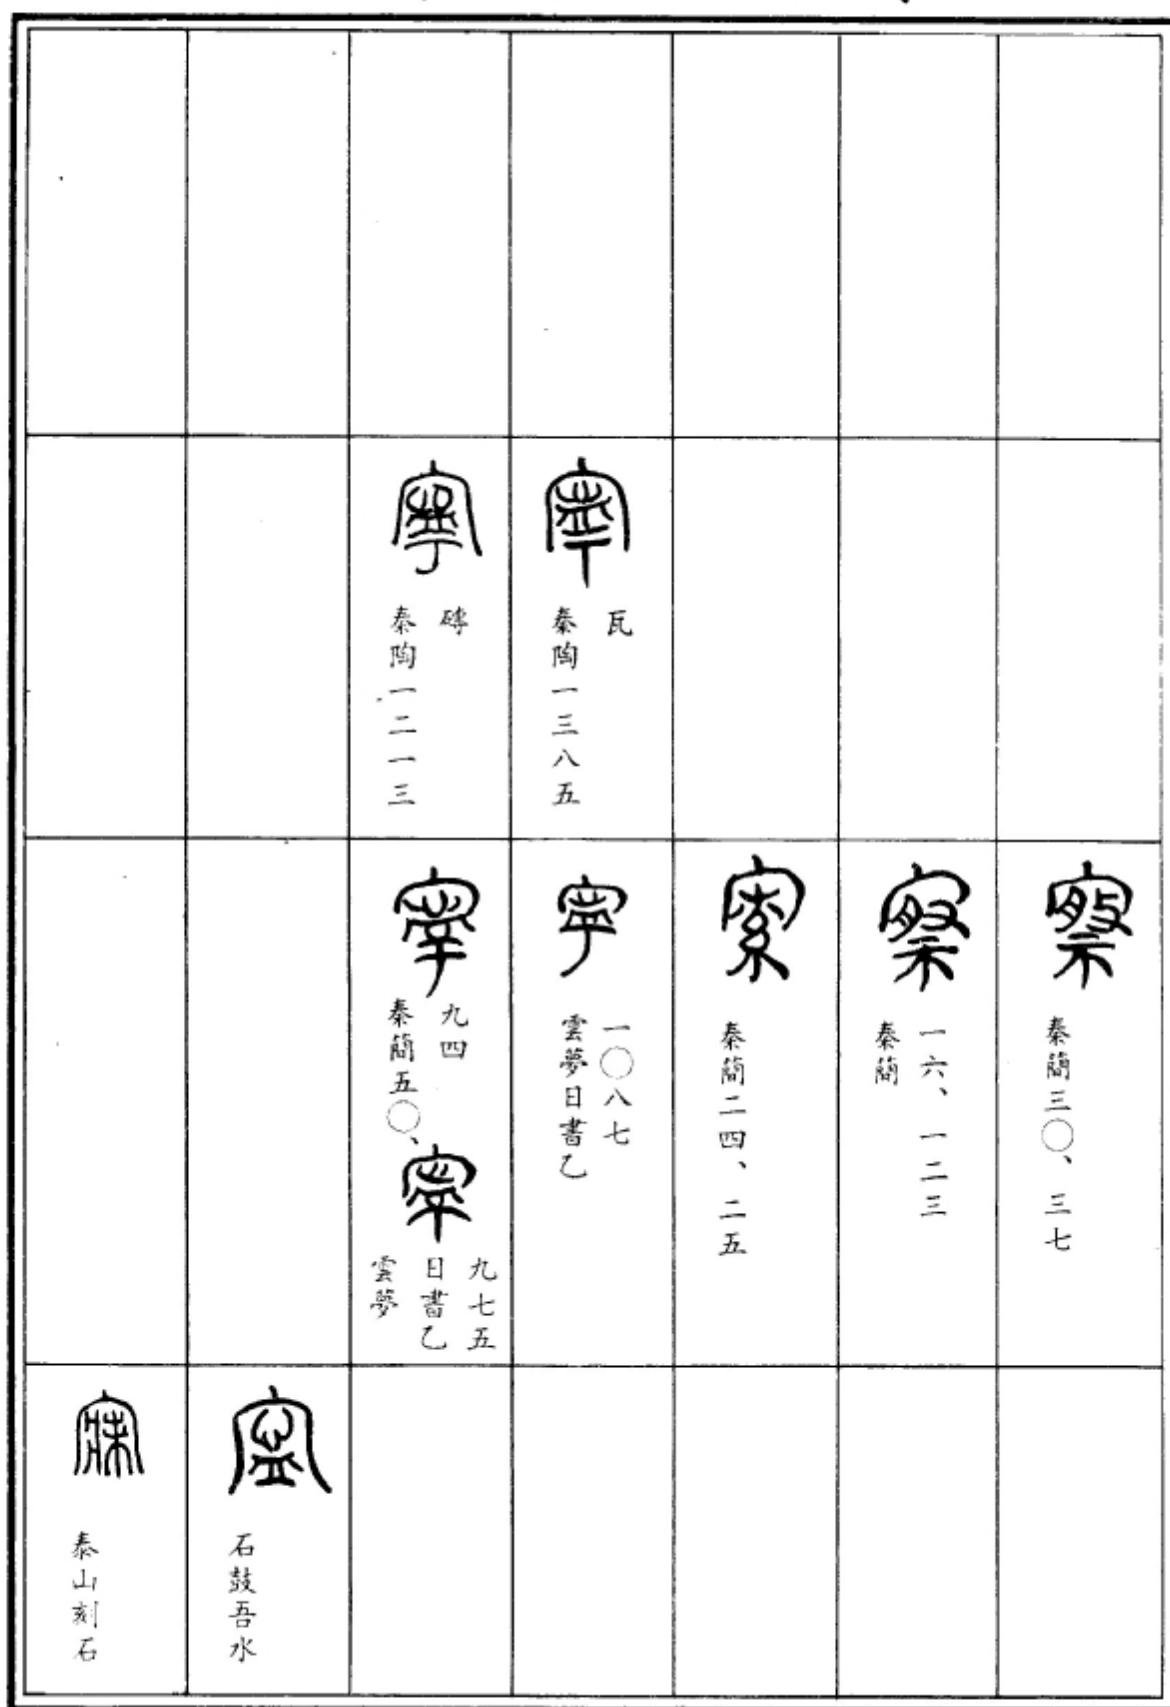 寧
秦陶一三八五
瓦
寧
秦陶一二一三
磚
察
秦簡三〇、三七
察
秦簡
一六、一二三
𡩡
秦簡二四、二五
寧
雲夢日書乙
一〇八七
寧
秦簡五〇、
九四
寧
雲夢
日書乙
九七五
寍
石鼓吾水
寐
泰山刻石